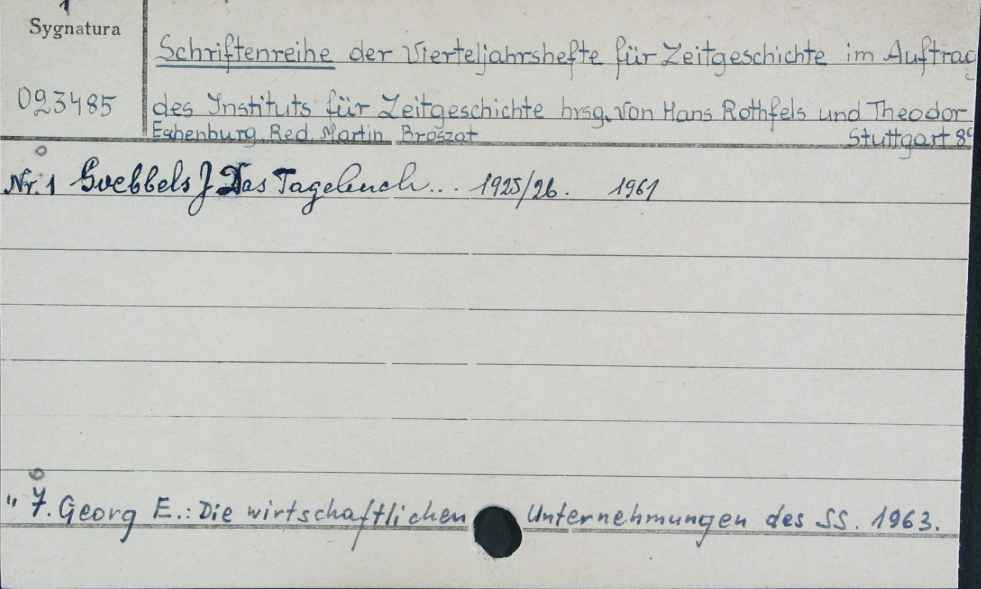 Sygnatura
Schriftenreihe der Vierteljahrshefte für Zeitgeschichte im Auftrag
023485
des Instituts für Zeitgeschichte hrsg. von Hans Rothfels und Theodor
Eschenburg. Red. Martin Broszat Stuttgart 8°
Nr. 1 Goebbels J Das Tagebuch... 1925/26. 1961
" 7. Georg E.: Die wirtschaftlichen Unternehmungen des SS. 1963.